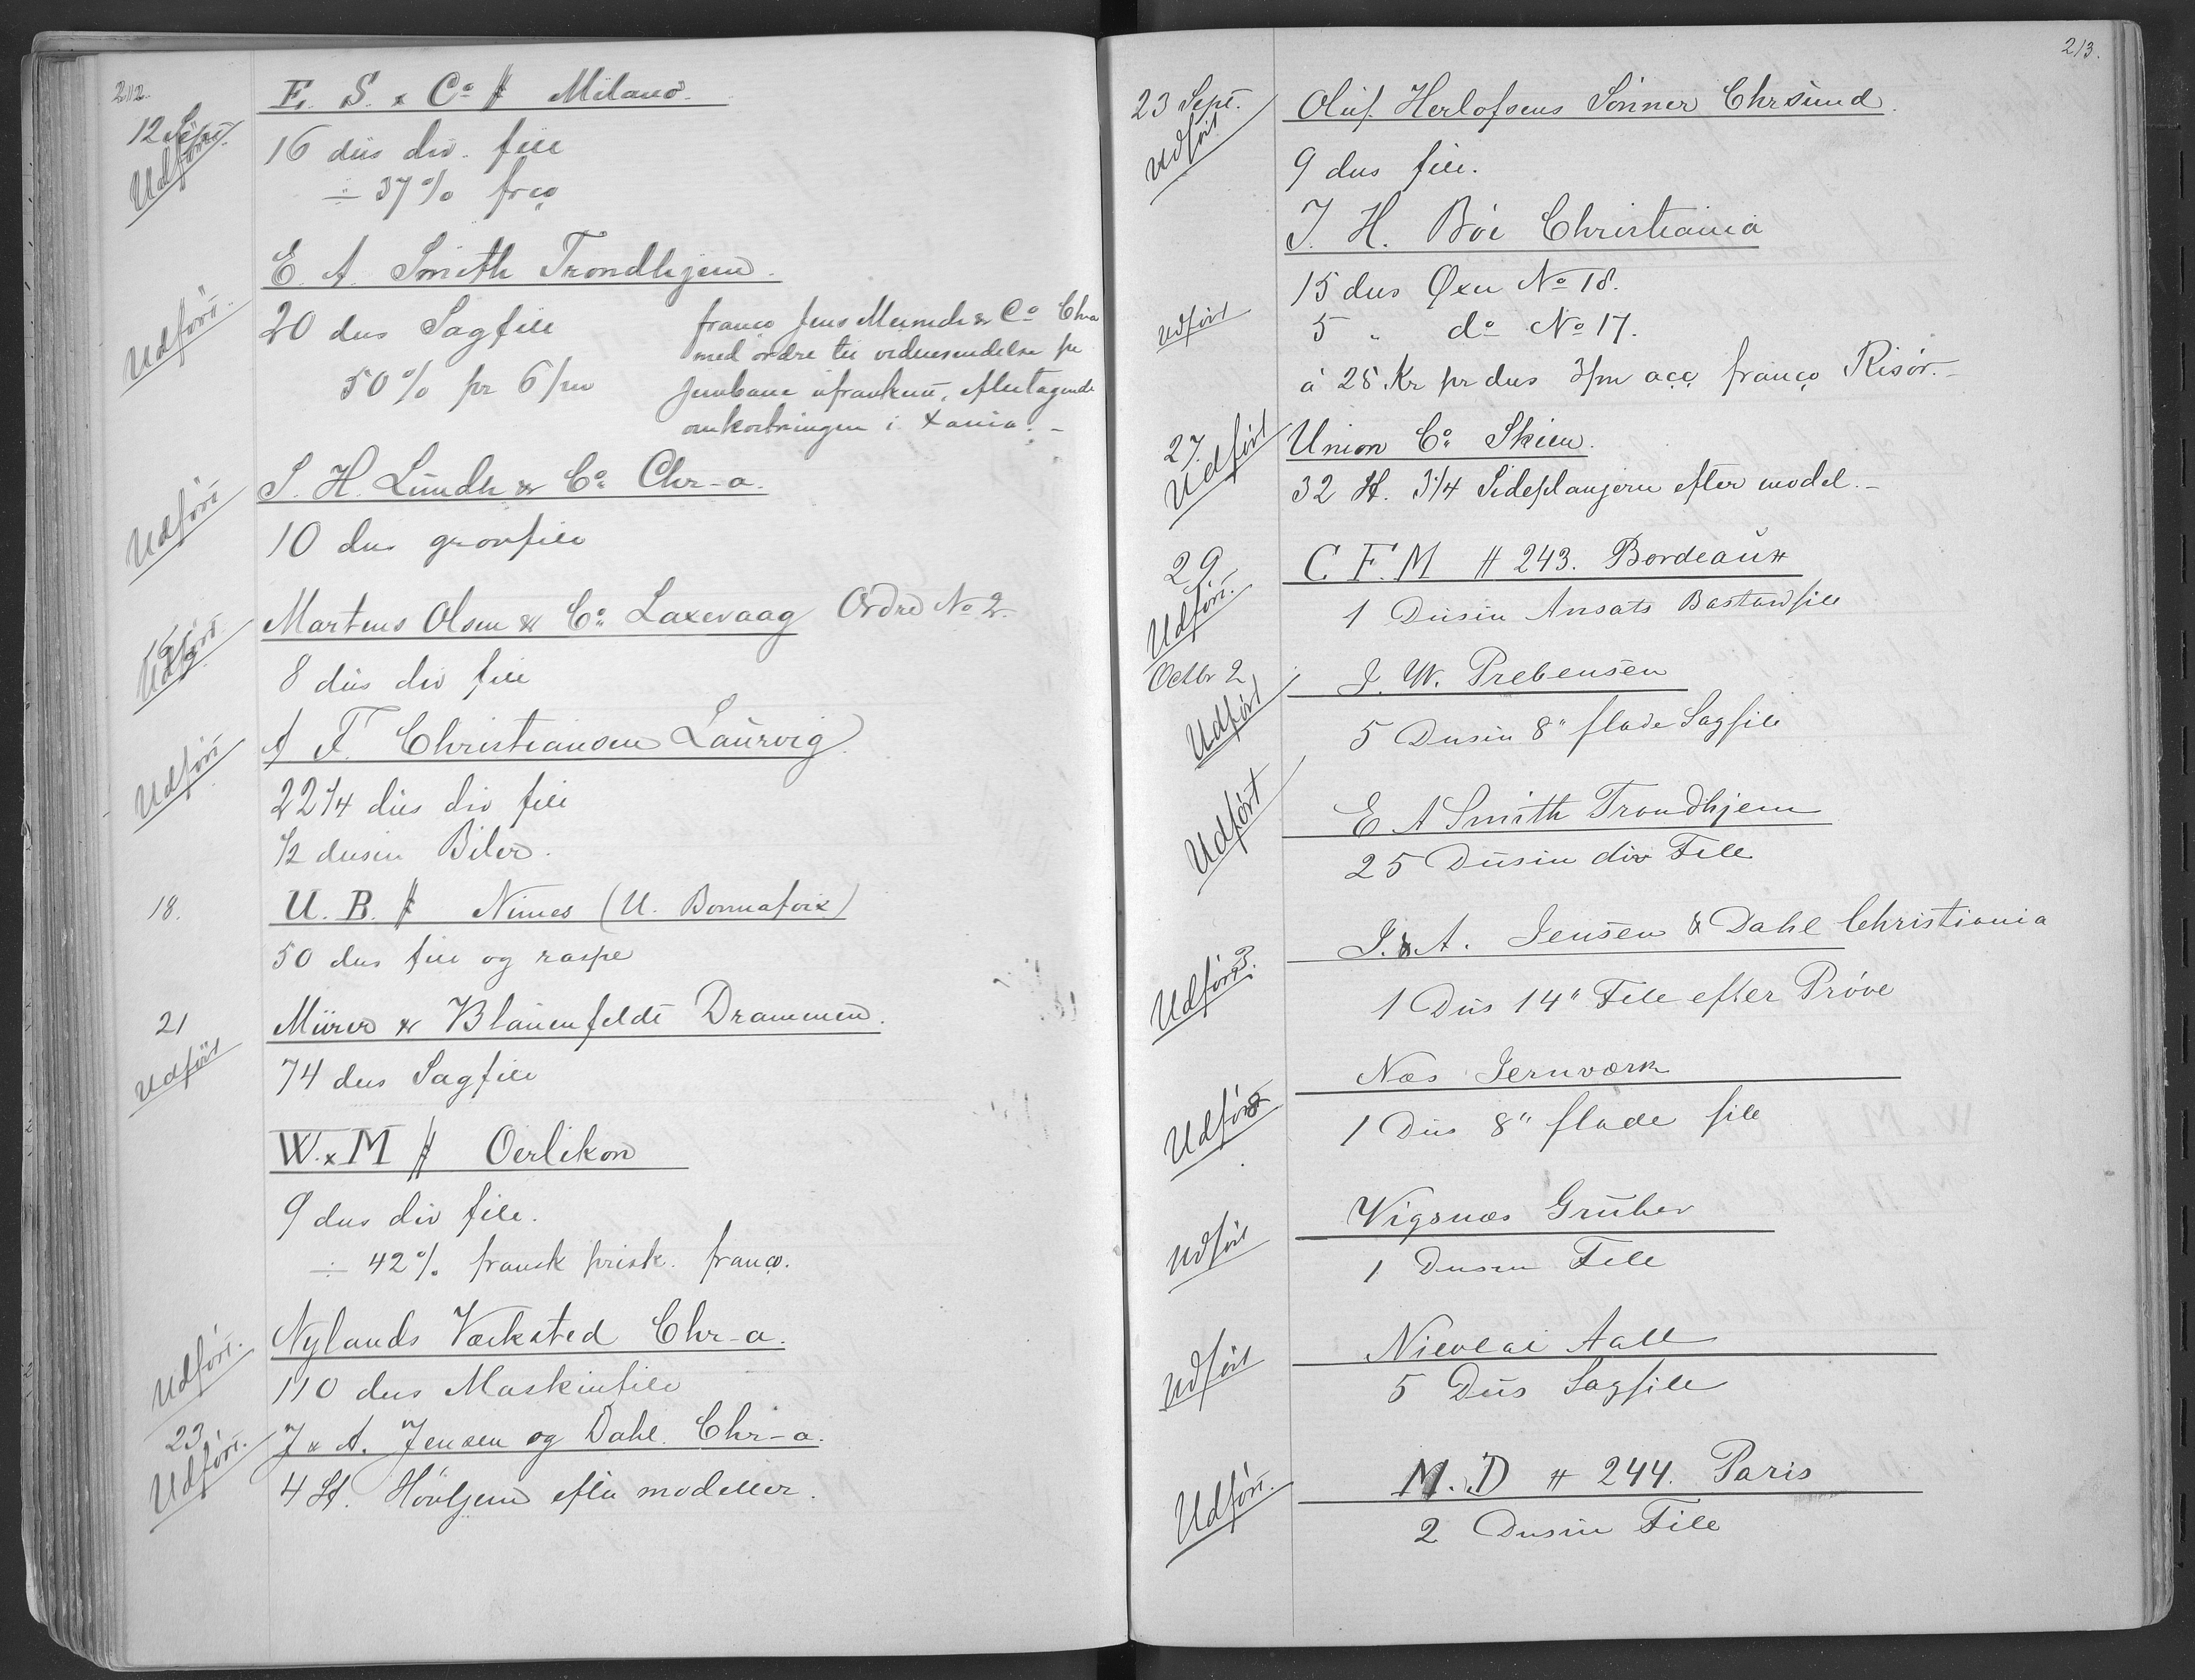 212.
12 Sept.
Udført
E. S. & Co # Milano.
16 dus div. file
÷ 37% frco
E. A. Smith Trondhjem.
Udført.
20 dus Sagfile
50% pr 6/m
franco Jens Meinich & Co Chra
med ordre til videresendelse pr
Jernbane ufrankeret, eftertagende
omkostningen i Xania. -
Udført
S. H. Lundh & Co. Chr-a.
10 dus grovfile
Udført
Martens Olsen & Co. Laxevaag Ordre No 2.
8 dus div file
Udført
A F. Christiansen Laurvig.
22 1/4 dus div file
1/2 dusin Biler.
18.
U. B. # Nimes (U. Bonnafoix)
50 dus file og raspe
21
Udført
Mürer & Blauenfeldt Drammen.
74 dus Sagfile
W. & M # Oerlikon
9 dus div file.
÷ 42% fransk prisk. franco.
Udført.
Nylands Værksted Chr-a.
110 dus Maskinfile
23.
Udført.
J & A. Jensen og Dahl. Chr-a.
4 St. Høvljern efter modeller.
213.
23 Sept.
Udført
Oluf Herlofsens Sønner Chrsund.
9 dus file.
J. H. Bøe Christiania
15 dus Øxer No 18.
Udført
5 " do No 17.
á 25 Kr pr dus 3/m acc franco Risør. -
27.
Udført
Union Co. Skien.
32 St. 3 1/4 Sideplanjern efter model. -
29
Udført.
C. F. M # 243. Bordeaux
1 Dusin Ansats Bastardfile
Octbr 2
Udført
J. W. Prebensen
5 Dusin 8" flade Sagfile
Udført
E A Smith Trondhjem
25 Dusin div File
3.
Udført
J. & A. Jensen & Dahl Christiania
1 Dus 14" File efter Prøve
Udført
Næs Jernværk
1 Dus 8" flade file
Udført
Vigsnæs Gruber
1 Dusin File
Udført
Nicolai Aall
5 Dus Sagfile
Udført.
M. D # 244. Paris
2 Dusin File